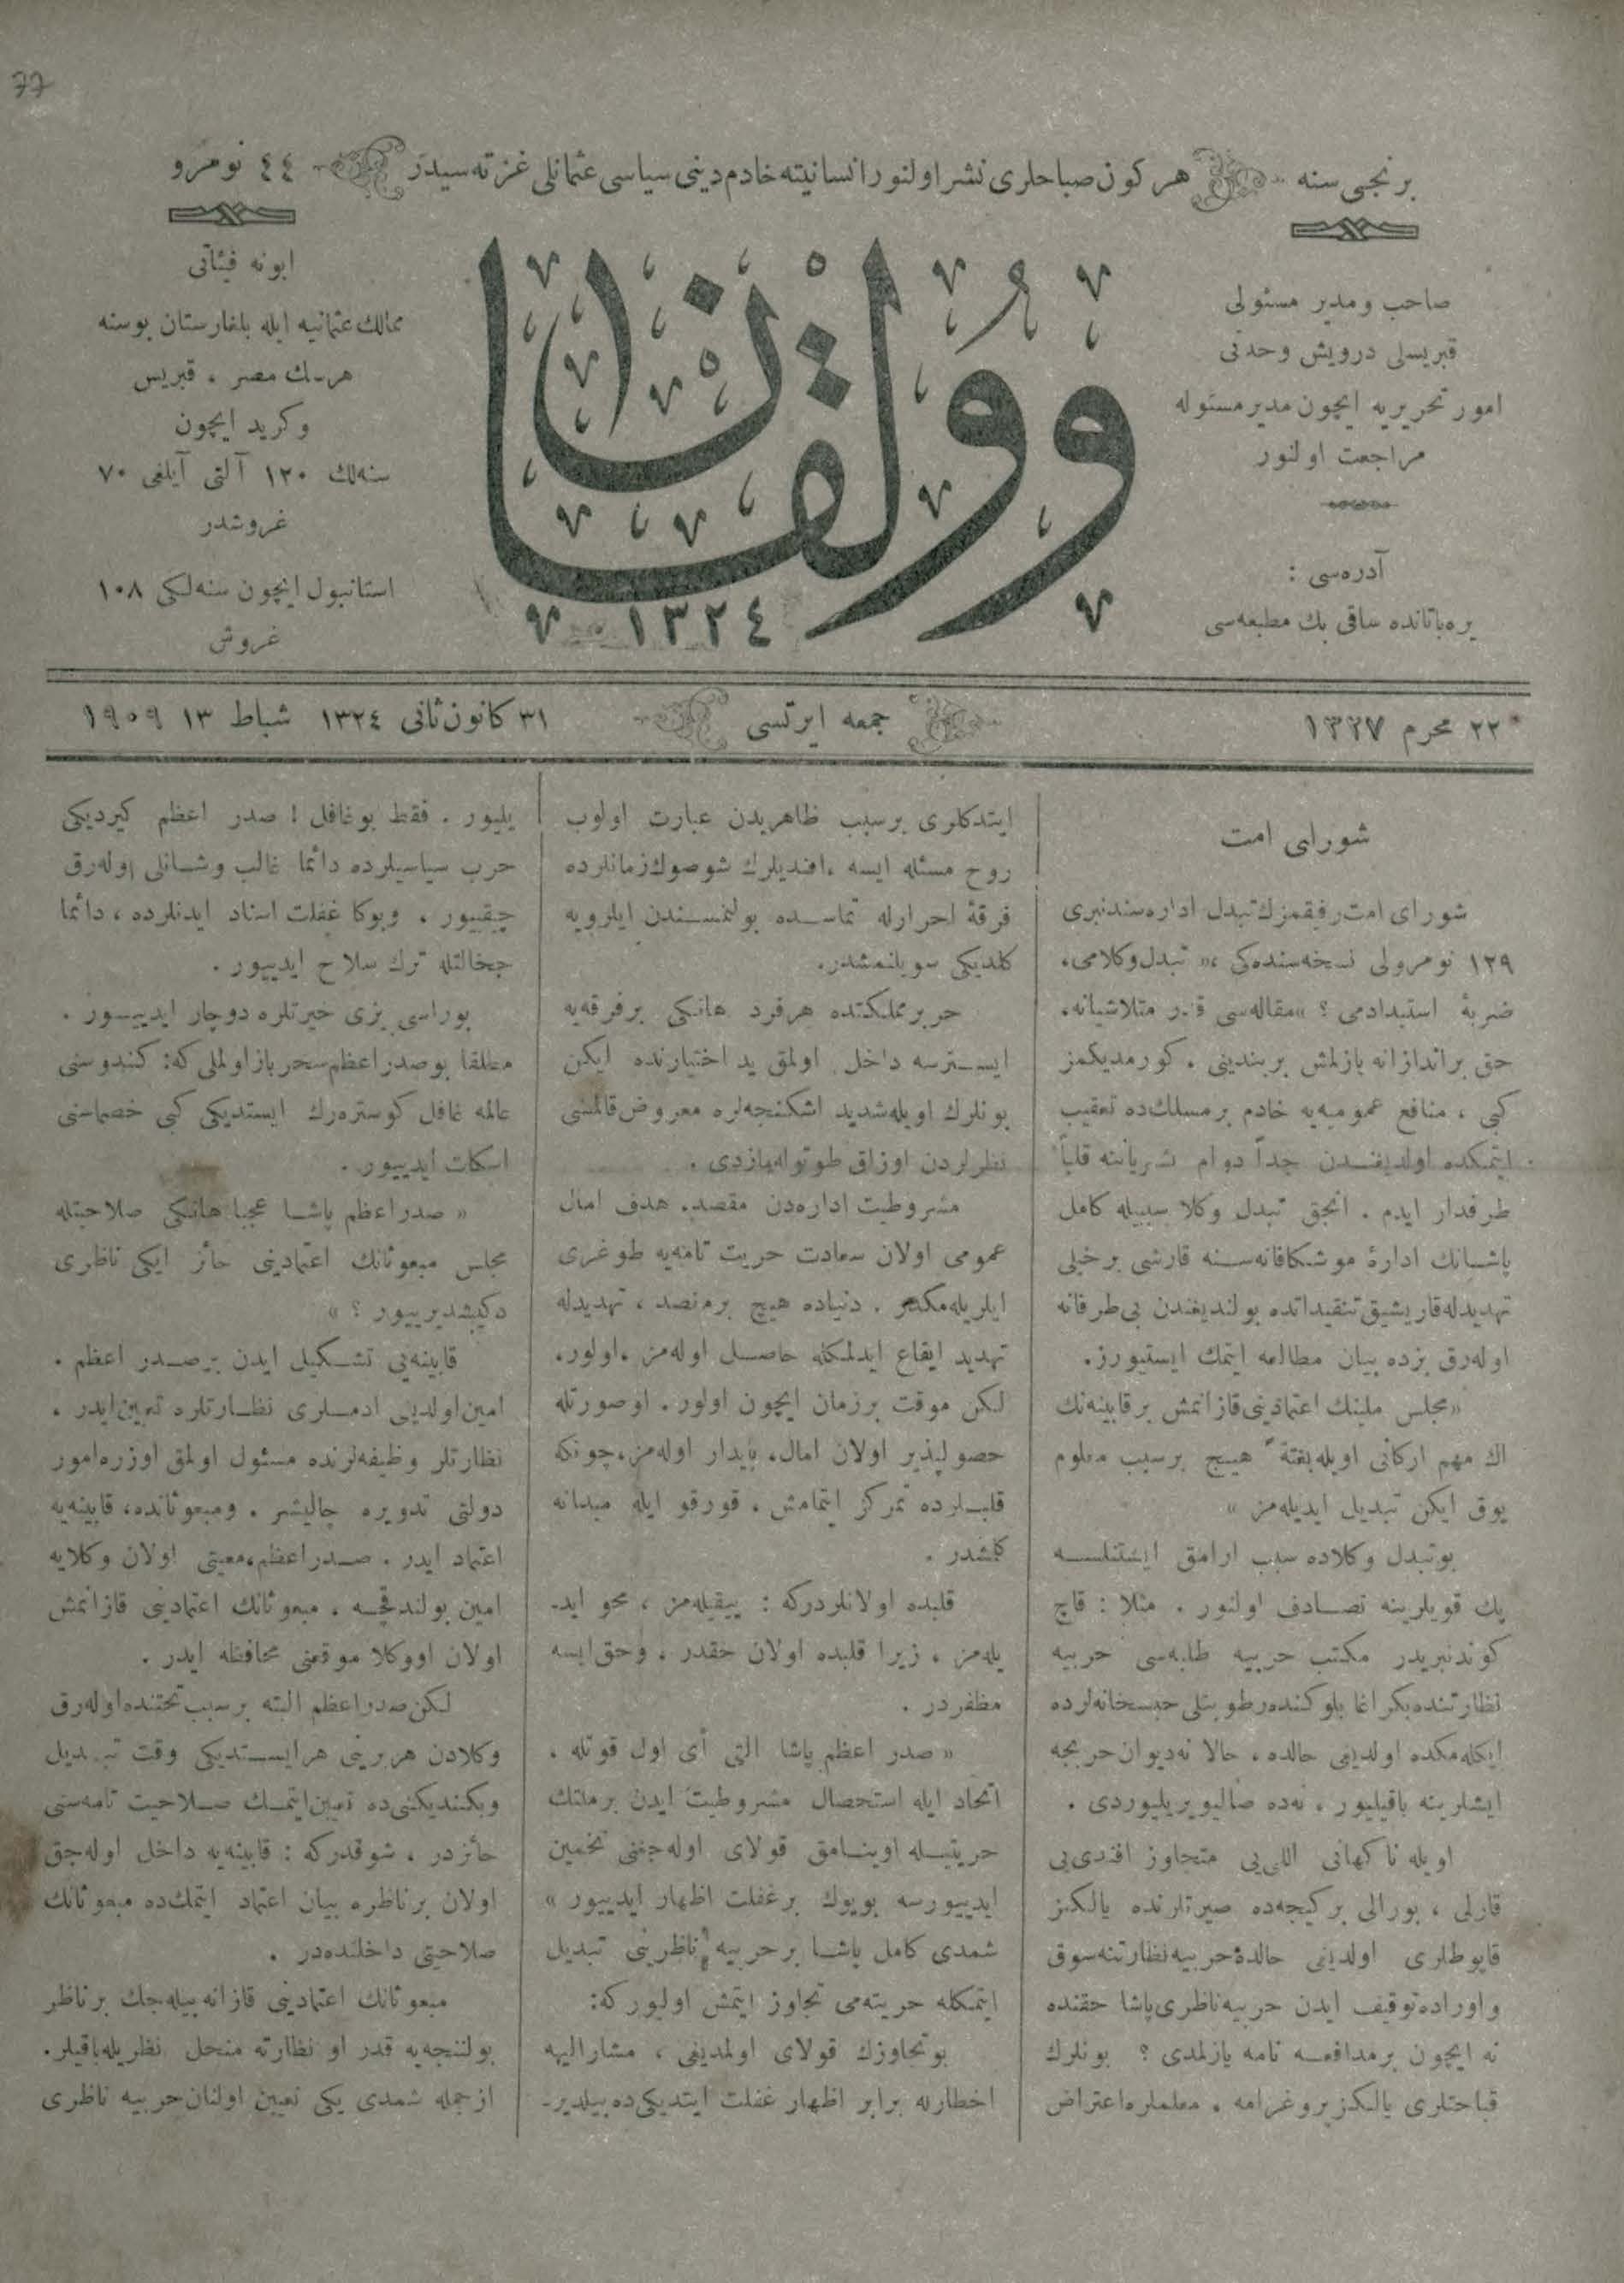 77
برنجی سنه
هر كون صباحلری نشر اولنور انسانيته خادم دينی سياسی عثمانلی غزته سيدر
٤٤ نومرو
صاحب ومدير مسئولی
قبريسلی درويش وحدتی
امور تحريريه ايچون مدير مسئوله
مراجعت اولنور
آدره‌سی :
يره‌باتانده ساقی بك مطبعه‌سی
وولقان
١٣٢٤
ابونه فيئاتی
ممالك عثمانيه ايله بلغارستان بوسنه
هرسك مصر ، قبريس
وكريد ايچون
سنه‌لك ١٢٠ آلتی آيلغی ٧٠
غروشدر
استانبول ايچون سنه‌لكی ١٠٨
غروش
٢٢ محرم ١٣٢٧
جمعه ايرتسی
٣١ كانون ثانی ١٣٢٤ شباط ١٣ ١٩٠٩
شورای امت
شورای امت رفيقمزك تبدل اداره سندنبری
١٢٩ نومرولی نسخه سنده‌كی «تبدل وكلامی،
ضربهٔ استبدادمی ؟» مقاله‌سی قدر متلاشيانه،
حق براندازانه يازلمش بربندينی . كورمديكمز
كبی ، منافع عموميه‌يه خادم برمسلك‌ده تعقيب
ايتمكده اولديغندن جداً دوام نشرياتنه قلباً
طرفدار ايدم . انجق تبدل وكلا سببيله كامل
پاشانك ادارهٔ موشكافانه‌سنه قارشی برخيلی
تهديدله قاريشيق تنقيداتده بولنديغندن بی‌طرفانه
اوله‌رق بزده بيان مطالعه ايتمك ايستيورز.
«مجلس ملينك اعتمادينی قازانمش برقابينه‌نك
اك مهم اركانی اويله بغتةً هيچ برسبب معلوم
يوق ايكن تبديل ايديله‌مز »
بوتبدل وكلاده سبب ارامق ايستنلسه
پك قويلرينه تصادف اولنور . مثلا : قاچ
كوندنبريدر مكتب حربيه طلبه‌سی حربيه
نظارتنده بكر اغا بلوكنده رطوبتلی حبسخانه‌لرده
ايكله‌مكده اولدينی حالده ، حالا نه‌ديوان حربجه
ايشلرينه باقيليور ، نه‌ده صاليويريليوردی .
اويله ناكهانی اللی‌يی متجاوز افندی‌يی
قارلی ، بورالی بر كيجه‌ده صيرتلرنده يالكز
قاپوطلری اولدينی حالدهٔ حربيه نظارتنه سوق
واوراده توقيف ايدن حربيه ناظری پاشا حقنده
نه ايچون برمدافعه نامه يازلمدی ؟ بونلرك
قباحتلری يالكز پروغرامه ، معلملره اعتراض
ايتدكلری برسبب ظاهريدن عبارت اولوب
روح مسئله ايسه ، افنديلرك شوصوك زمانلرده
فرقهٔ احرارله تماسده بولنمسندن ايلرويه
كلديكی سويلنمشدر.
حر بر مملكتده هرفرد هانكی برفرقه‌يه
ايسترسه داخل اولمق يد اختيارنده ايكن
بونلرك اويله شديد اشكنجه‌لره معروض قالمسی
نظرلردن اوزاق طوتوله‌مازدی .
مشروطيت اداره‌دن مقصد، هدف امال
عمومی اولان سعادت حريت تامه‌يه طوغری
ايلريله‌مكدر . دنياده هيچ برمقصد ، تهديدله
تهديد ايقاع ايدلمكله حاصل اوله‌مز ، اولور،
لكن موقت برزمان ايچون اولور . اوصورتله
حصولپذير اولان امال، پايدار اوله‌مز، چونكه
قلبلرده تمركز ايتمامش ، قورقو ايله ميدانه
كلمشدر .
قلبده اولانلردركه : ييقيله‌مز ، محو ايد-
يله‌مز ، زيرا قلبده اولان حقدر ، وحق ايسه
مظفردر .
« صدر اعظم پاشا التی آی اول قوتله ،
اتحاد ايله استحصال مشروطيت ايدن برملتك
حريتيله اوينامق قولای اوله‌جغنی تخمين
ايدييورسه بويوك برغفلت اظهار ايدييور »
شمدی كامل پاشا برحربيه ناظرينی تبديل
ايتمكله حريته‌می تجاوز ايتمش اوليور كه:
بوتجاوزك قولای اولمدينی ، مشاراليه
اخطارله برابر اظهار غفلت ايتديكی‌ده بيلدير-
يليور . فقط بوغافل ! صدر اعظم كيرديكی
حرب سياسيلرده دائما غالب وشانلی اوله‌رق
چيقييور ، وبوكا غفلت اسناد ايدنلرده ، دائما
خجالتله ترك سلاح ايدييور .
بوراسی بزی حيرتلره دوچار ايدييور .
مطلقا بو صدر اعظم سحرباز اولملی كه: كندوسنی
عالمه غافل كوستره‌رك ايستديكی كبی خصماسنی
اسكات ايدييور .
« صدر اعظم پاشا عجبا هانكی صلاحيتله
مجلس مبعوثانك اعتمادينی حائز ايكی ناظری
دكيشديرييور ؟ »
قابينه‌يی تشكيل ايدن برصدر اعظم ،
امين اولدينی ادملری نظارتلره تعيين ايدر ،
نظارتلر وظيفه‌لرنده مسئول اولمق اوزره امور
دولتی تدويره چاليشر . ومبعوثانده، قابينه‌يه
اعتماد ايدر . صدر اعظم، معيتی اولان وكلايه
امين بولندقجه ، مبعوثانك اعتمادينی قازانمش
اولان اووكلا موقعنی محافظه ايدر .
لكن صدر اعظم البته برسبب تحتنده اوله‌رق
وكلادن هربرينی هرايستديكی وقت تبديل
وبكنديكنی‌ده تعيين ايتمك صلاحيت تامه‌سنی
حائزدر ، شوقدركه : قابينه‌يه داخل اوله‌جق
اولان برناظره بيان اعتماد ايتمك‌ده مبعوثانك
صلاحيتی داخلنده‌در .
مبعوثانك اعتمادينی قازانه‌بيله‌جك برناظر
بولننجه‌يه قدر او نظارته منحل نظريله باقيلر.
ازجمله شمدی يكی تعيين اولنان حربيه ناظری